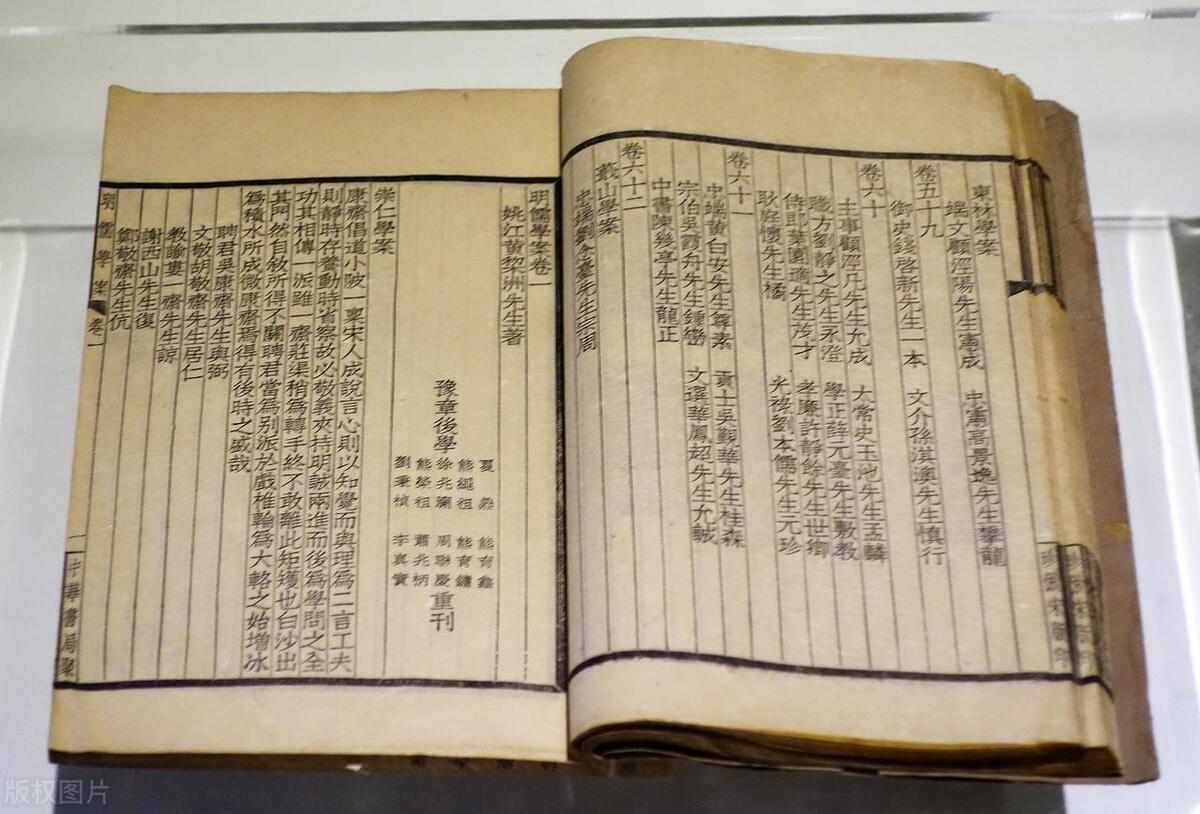 東林學案
端文顧涇陽先生憲成　忠憲高景逸先生攀龍
卷五十九
御史錢啓新先生一本　文介孫淇澳先生慎行
卷六十
主事顧涇凡先生允成　太常史玉池先生孟麟
職方劉靜之先生永澄　學正薛元臺先生敷教
侍郎葉園適先生茂才　孝廉許靜餘先生世卿
耿庭懷先生橘　光祿劉本儒先生元珍
卷六十一
忠端黃白安先生尊素　貢士吳覲華先生桂森
宗伯吳霞舟先生鍾巒　文選華鳳超先生允誠
中書陳幾亭先生龍正
卷六十二
蕺山學案
忠端劉念臺先生宗周
明儒學案卷一
姚江黃棃洲先生著
豫章後學
夏　熊育鑫
熊繩祖　熊育鏞
徐兆瀾　周聯慶
熊榮祖　蕭兆柄
劉秉楨　李真實
重刊
崇仁學案
康齋倡道小陂一稟宋人成說言心則以知覺而與理爲二言工夫
則靜時存養動時省察故必敬義夾持明誠兩進而後爲學問之全
功其相傳一派雖一齋莊渠稍爲轉手終不敢離此矩矱也白沙出
其門然自敘所得不關聘君當爲別派於戲椎輪爲大輅之始增冰
爲積水所成微康齋焉得有後時之盛哉
聘君吳康齋先生與弼
文敬胡敬齋先生居仁
教諭婁一齋先生諒
謝西山先生復
鄭敬齋先生伉
明儒學案　卷一　一　中華書局聚
版权图片